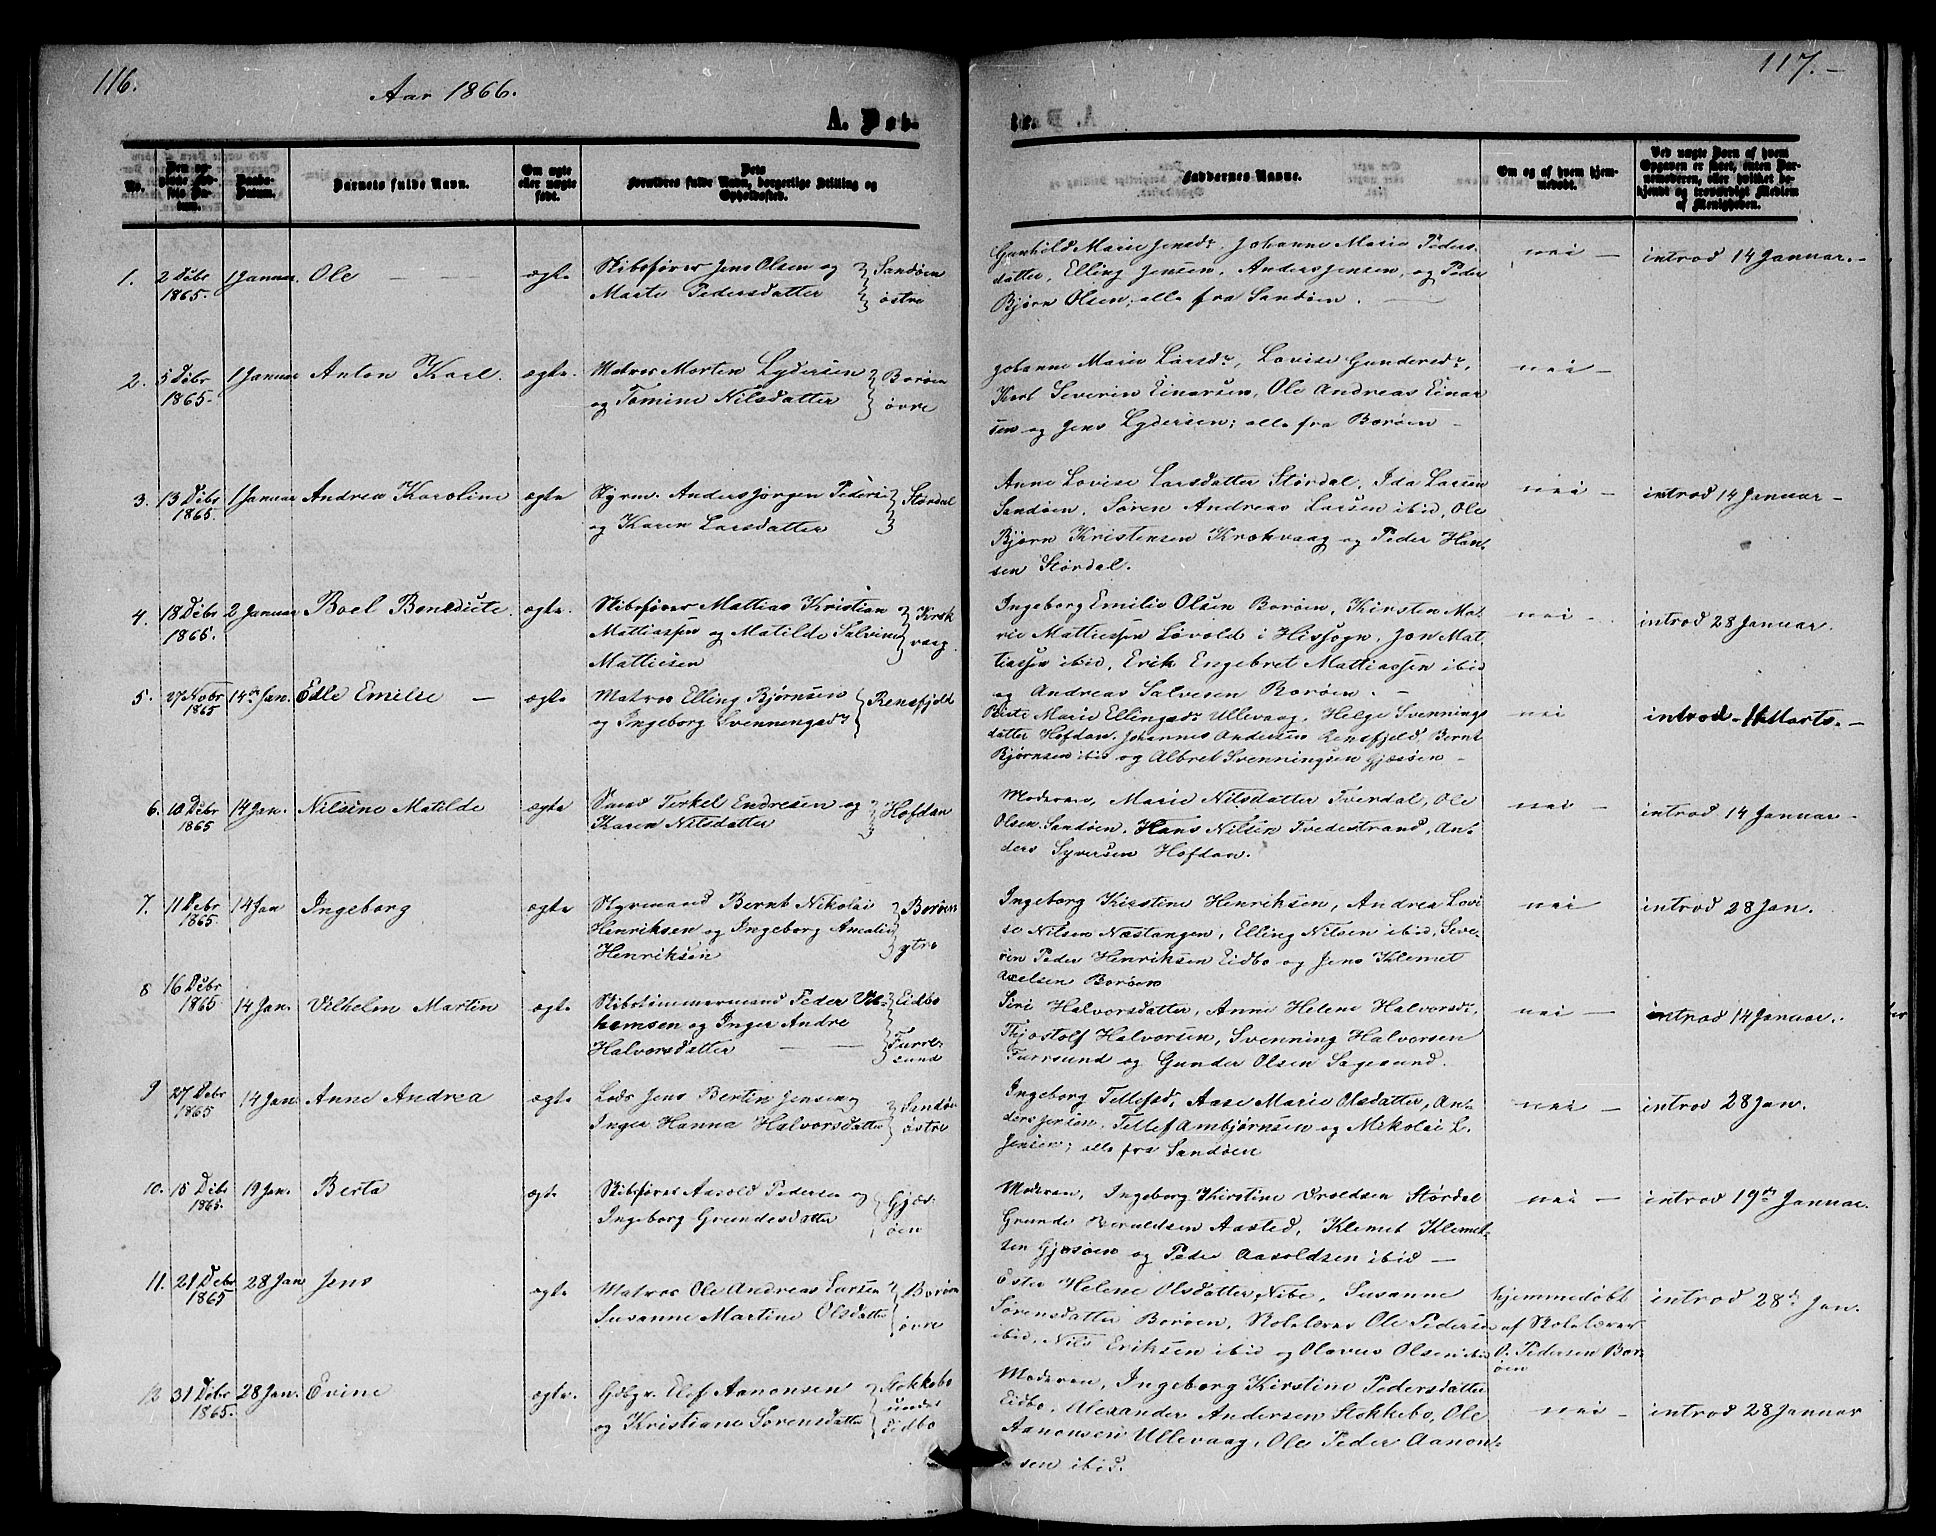 116.
Aar 1866.
A. Døb-
No.
Den op-
Daabs-
Datum.
Barnets fulde Navn.
Om ægte
eller uægte
født.
Dets
Forældres fulde Navn, borgerlige Stilling og
Opholdssted.
1.
2 Debr
1865.
1 Januar.
Ole
ægte
Skibsfører Jens Olsen og
Marte Pedersdatter
Sandøen
østre
2.
5 Debr
1865.
1 Januar
Anton Karl.
ægte.
Matros Morten Lydersen
og Tomine Nilsdatter
Borøen
øvre
3.
13 Debr
1865.
1 Januar
Andrea Karoline
ægte
Styrm. Anders Jørgen Peders
og Karen Larsdatter
Størdal
4.
18 Debr
1866.
2 Januar
Boel Benedicte.
ægte.
Skibsfører Mattias Kristian
Mattiassen og Matilde Salvine
Mattiesen
Krok
vaag.
5.
27 Novbr
1865
14de Jan.
Edle Emilie
ægte
Matros Elling Bjørnsen
og Ingeborg Svenningsdr
Rensfjeld
6.
10 Debr
1865
14 Jan.
Nilsine Matilde
ægte
Terkel Endresen og
Karen Nilsdatter
Hofdan
7.
11 Debr
1865.
14 Jan
Ingeborg
ægte
Styrmand Bernt Nikolai
Henriksen og Ingeborg Amalie
Henriksen
Borøen
ytre
8
16 Debr
1865
14 Jan.
Vilhelm Martin
ægte
Skibstømmermand Peder Vil-
hemsen og Inger Andre
Halvorsdatter
Eidbo
Furre-
sund
9
27 Debr
1865
14 Jan
Anne Andrea
ægte
Lods Jens Bertin Jensen og
Inger Hanna Halvorsdatter
Sandøn
østre
10.
15 Debr
1865.
19 Jan.
Berta
ægte
Skibsfører Aasold Pedersen og
Ingeborg Grundesdatter
Gjæs-
øen
11.
21 Debr
1865
28 Jan
Jens
ægte
Matros Ole Andreas Larsen
Susanne Martine Olsdatter
Borøen
øvre
12
31 Debr
1865.
28 Jan.
Evine
ægte.
Gdbgr. Elef Aanonsen
og Kristiane Sørensdatter
Stokkebo
under
Eidbo
117.-
te.
Faddernes Navne.
Om og af hvem hjem-
medøbt.
Ved uægte Børn af hvem
Opgaven er skeet, enten Bar-
nemoderen, eller hvilket be-
kjendt og troværdigt Medlem
af Menigheden.
Gunhild Marie Jensdr, Johanne Marie Peders-
datter, Elling Jensen, Anders Jensen, og Peder
Bjørn Olsen, alle fra Sandøen.
nei
introd 14 Januar.
Johanne Marie Larsdr, Lovise Gundersdr,
Karl Severin Einarsen, Ole Andreas Einar
sen og Jens Lydersen; alle fra Borøen
nei
Anne Lovise Larsdatter Størdal, Ida Larsen
Sandøen, Søren Andreas Larsen ibid, Ole
Bjørn Kristensen Krokvaag og Peder Han-
sen Størdal.
nei
introd 14 Januar
Ingeborg Emilie Olsen Borøen, Kirsten Ma-
rie Mattiessen Løvold i Hissogn, Jon Mat
tiassen ibid, Erik Engebret Mattiassen ibid
og Andreas Salvesen Borøen.
nei
introd 28 Januar.
Berte Marie Ellingsdr Ullevaag, Helge Svennings
datter Hofdan, Johannes Andersen Rensfjeld, Bernt
Bjørnsen ibid og Albret Svenningsen Gjæsøen
nei
introd 11 Marts.
Moderen, Marie Nilsdatter Tverdal, Ole
Olsen Sandøen, Hans Nilsen Tvedestrand, An-
ders Syversen Hofdan.
nei
introd 14 Januar
Ingeborg Kirstine Henriksen, Andrea Lovi
se Nilsen Næstangen, Elling Nilsen ibid, Seve-
rin Peder Henriksen Eidbo og Jens Klemet
Axelsen Borøen
nei
introd 28 Jan.
Siri Halvorsdatter, Anne Helene Halvorsdr
Thjostolf Halvorsen, Svenning Halvorsen
Furrsund og Gunder Olsen Sagesund.
nei
introd 14 Januar.
Ingeborg Tellefsdr, Aase Marie Olsdatter, An-
ders Jensen, Tellef Ambjørnsen og Nikolai L.
Jensen; alle fra Sandøen
nei
introd 28 Jan.
Moderen, Ingeborg Kirstine Aroldsen Størdal
Grunde Haraldsen Aasted, Klemet Klemet-
sen Gjæsøen og Peder Aasoldsen ibid
nei
introd 19de Januar.
Ester Helene Olsdatter Nibe, Susanne
Sørensdatter Borøen, Skolelærer Ole Pedersen
ibid, Nils Eriksen ibid og Olavus Olsen ibid
hjemmedøbt
af Skolelærer
O. Pedersen Bor-
øen
introd 28de Jan.
Moderen, Ingeborg Kirstine Pedersdatter
Eidbo, Alexander Andersen Stokkebo, Ole
Aanonsen Ullevaag, Ole Peder Aanon-
sen ibid.
nei
introd 28 Januar